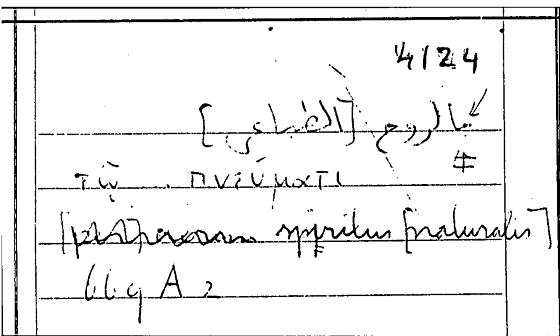 4124
بالروح [الطباعي]
τῷ .. πνεύματι
spiritus [naturalis]
669 A 2